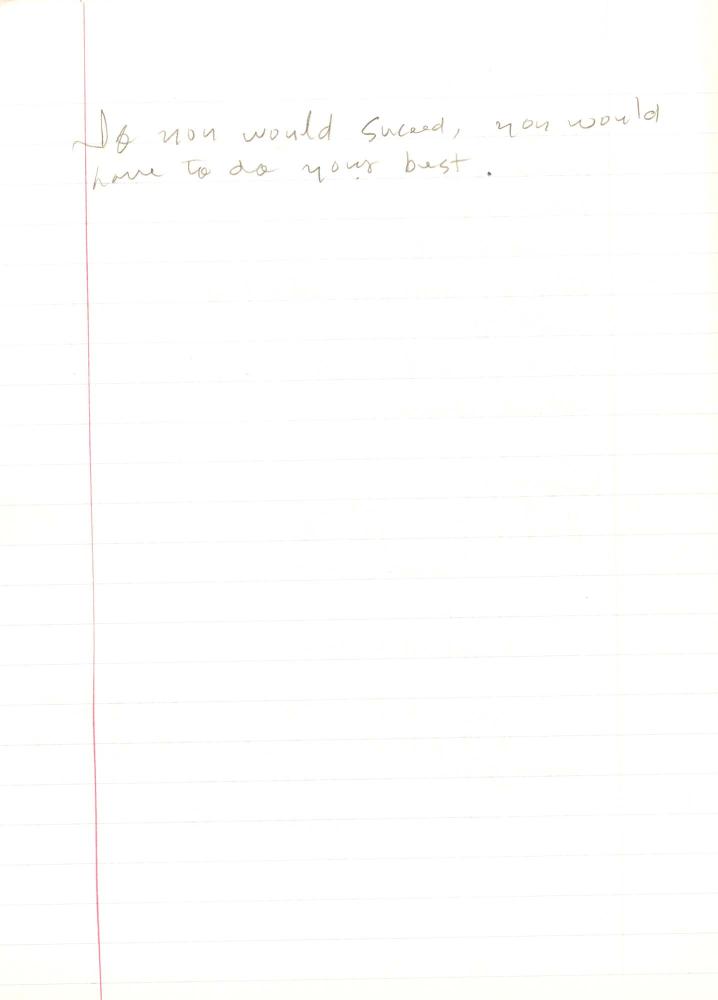 If you would Suceed, you would
have to do your best.